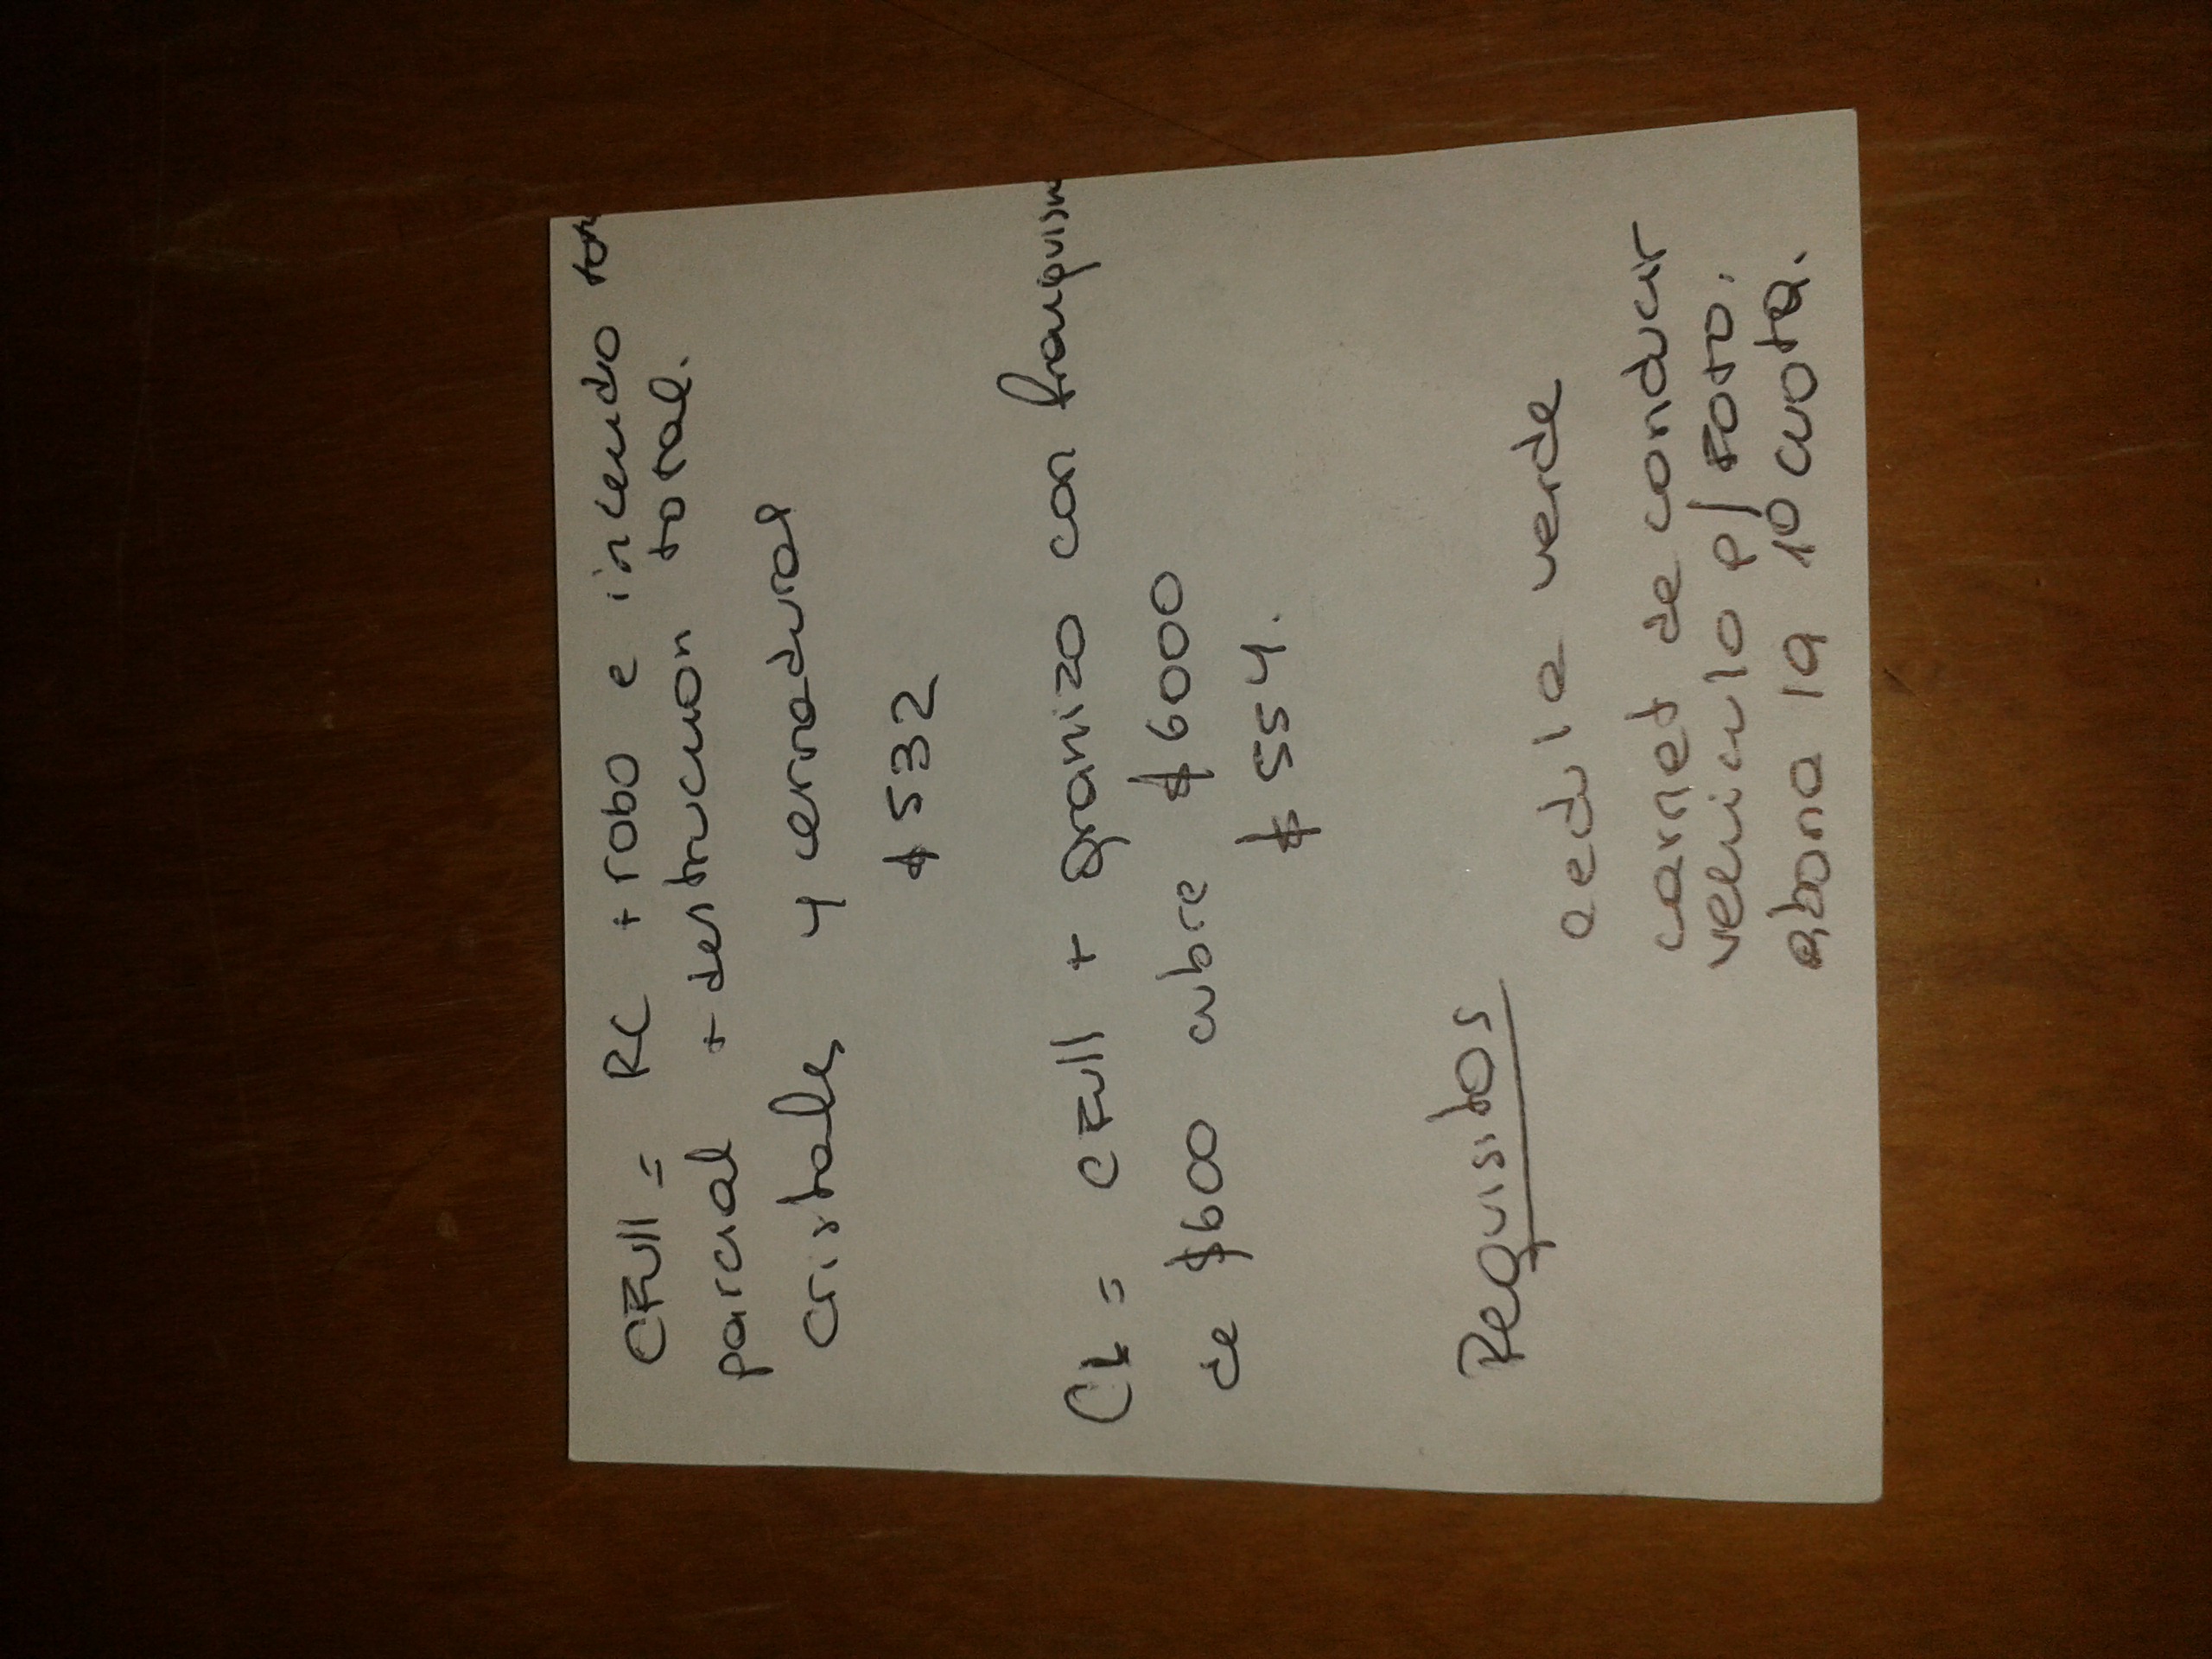 CFull = RC + robo e incendio tot
parcial + destruccion total.
cristales y cerraduras
$532
CL = CFull + granizo con
de $600 cubre $6000
$554.
Requisitos
cedula verde
carnet de conducir
vehiculo p/ Foto.
abona la 1º cuota.